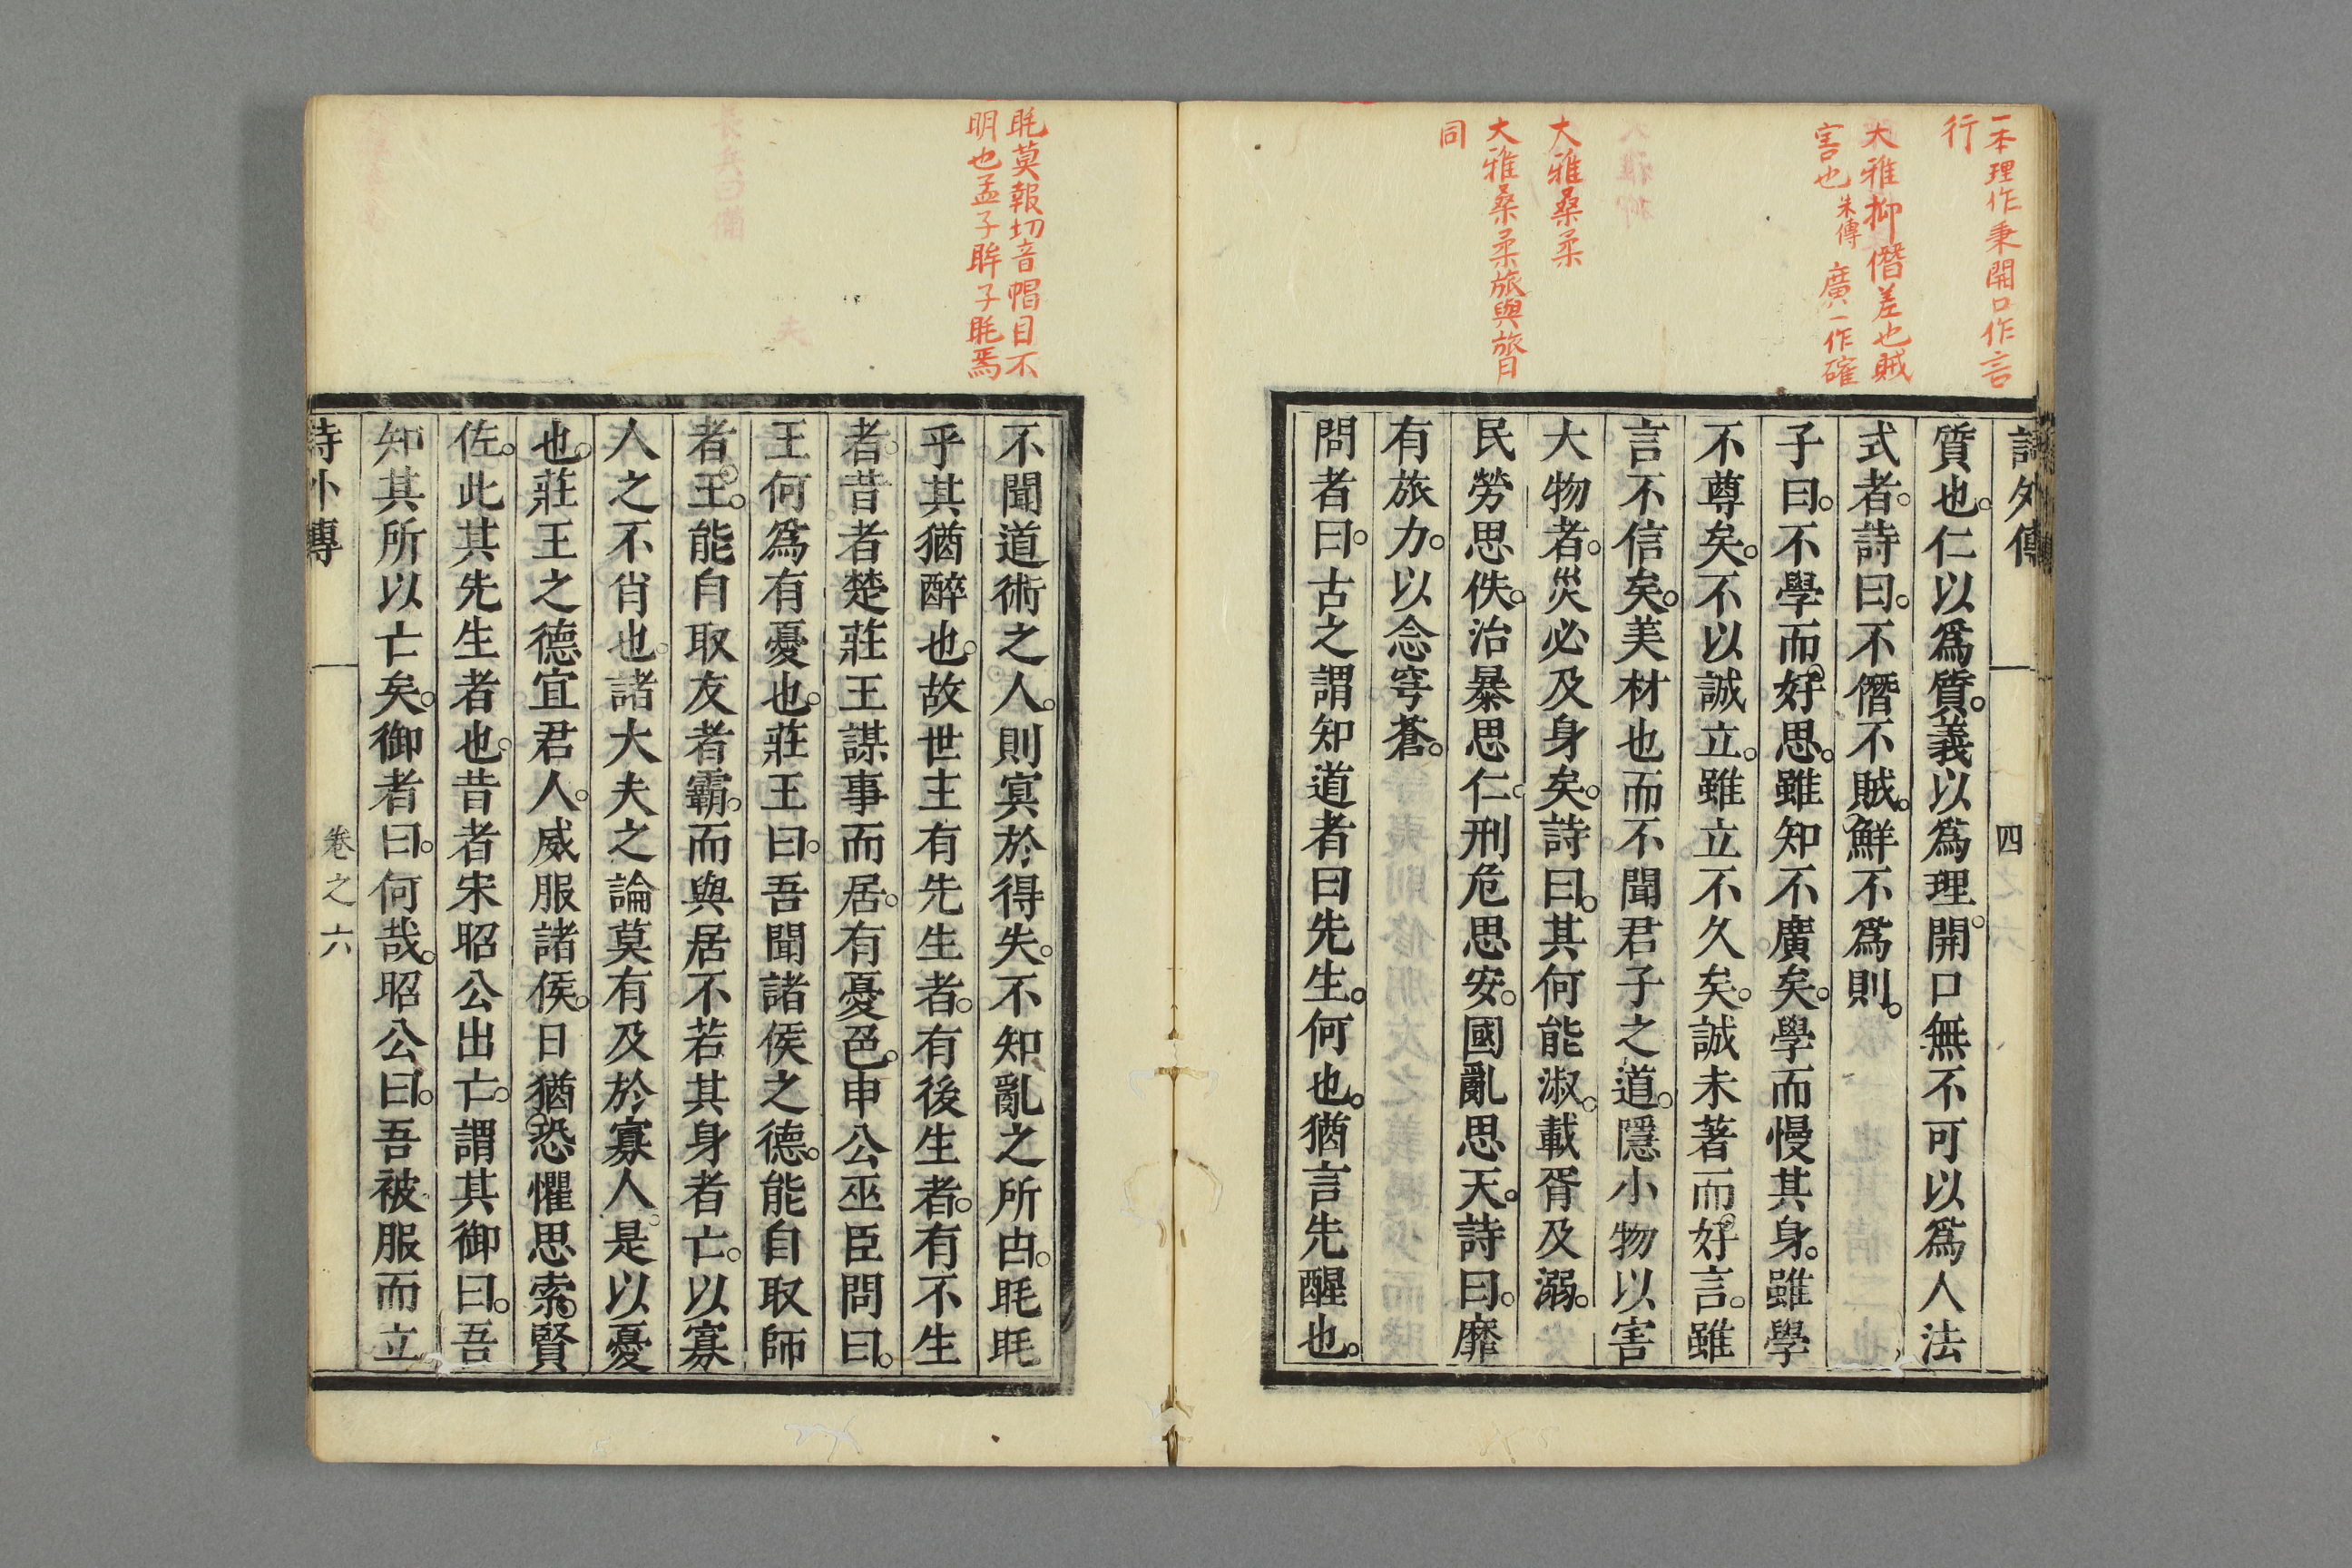 一本理作秉開口作言
行
大雅抑僭差也賊
害也朱傳 廣一作確
大雅桑柔
大雅桑柔旅與膂
同
詩外傳 四
質也。仁以爲質。義以爲理。開口無不可以爲人法
式者。詩曰。不僭不賊。鮮不爲則。
子曰。不學而好思。雖知不廣矣。學而慢其身。雖學
不尊矣。不以誠立。雖立不久矣。誠未著而好言。雖
言不信矣。美材也而不聞君子之道。隱小物以害
大物者。災必及身矣。詩曰。其何能淑。載胥及溺。
民勞思佚。治暴思仁。刑危思安。國亂思天。詩曰。靡
有旅力。以念穹蒼。
問者曰。古之謂知道者曰先生。何也。猶言先醒也。
眊莫報切音帽目不
明也孟子眸子眊焉
不聞道術之人。則㝠於得失。不知亂之所由。眊眊
乎其猶醉也。故世主有先生者。有後生者。有不生
者。昔者楚莊王謀事而居。有憂色。申公巫臣問曰。
王何爲有憂也。莊王曰。吾聞諸侯之德。能自取師
者。王。能自取友者霸。而與居不若其身者亡。以寡
人之不肖也。諸大夫之論莫有及於寡人。是以憂
也。莊王之德宜君人。威服諸侯。日猶恐懼思索。賢
佐。此其先生者也。昔者宋昭公出亡。謂其御曰。吾
知其所以亡矣。御者曰。何哉。昭公曰。吾被服而立
詩外傳 卷之六